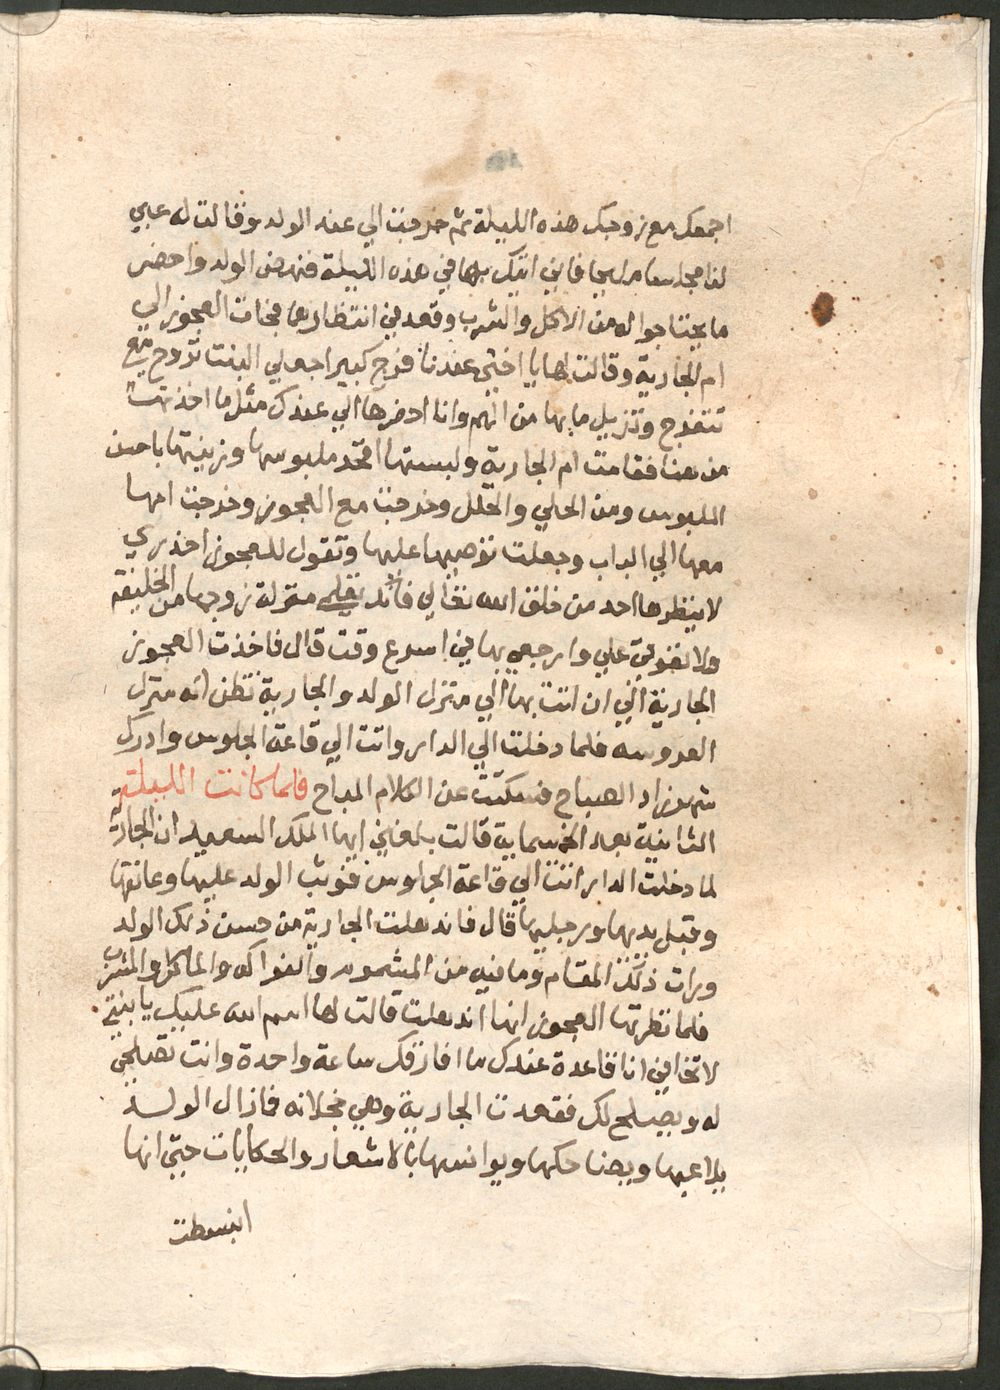 اجمعك مع زوجك هذه الليلة ثم خرجت الي عند الولد وقالت له عبي
لنا مجلسا مليحا فاني اتيك بها في هذه الليلة فنهض الولد واحضر
ما يحتاجوا له من الاكل والشرب وقعد في انتظارها فجات العجوز الي
ام الجارية وقالت لها يا اختي عندنا فرح كبير اجعلي البنت تروح معي
تتفرج وتزيل ما بها من الهم وانا احضرها الي عندك مثل ما اخذتها
من هنا فقامت ام الجارية ولبستها افخر ملبوسها وزينتها باحسن
الملبوس ومن الحلي والحلل وخرجت مع العجوز وخرجت امها
معها الي الباب وجعلت توصيها عليها وتقول للعجوز احذري
لا ينظرها احد من خلق الله تعالي فانك تعلمي منزلة زوجها من الخليفة
ولا تعوقي علي وارجعي بها في اسرع وقت قال فاخذت العجوز
الجارية الي ان اتت بها الي منزل الولد والجارية تظن انه منزل
العروسه فلما دخلت الي الدار واتت الي قاعة الجلوس وادرك
شهرزاد الصباح فسكتت عن الكلام المباح فلما كانت الليلة
الثانية بعد الخمسماية قالت بلغني ايها الملك السعيد ان الجارية
لما دخلت الدار اتت الي قاعة الجلوس فوثب الولد عليها وعانقها
وقبل يديها ورجليها قال فاندهلت الجارية من حسن ذلك الولد
ورات ذلك المقام وما فيه من المشموم والفواكه والماكل والمشرب
فلما نظرتها العجوز انها اندهلت قالت لها اسم الله عليك يا بنتي
لا تخافي انا قاعدة عندك ما افارقك ساعة واحدة وانت تصلحي
له ويصلح لك فقعدت الجارية وهي خجلانه فما زال الولد
يلاعبها ويضاحكها ويوانسها بالاشعار والحكايات حتي انها
انبسطت